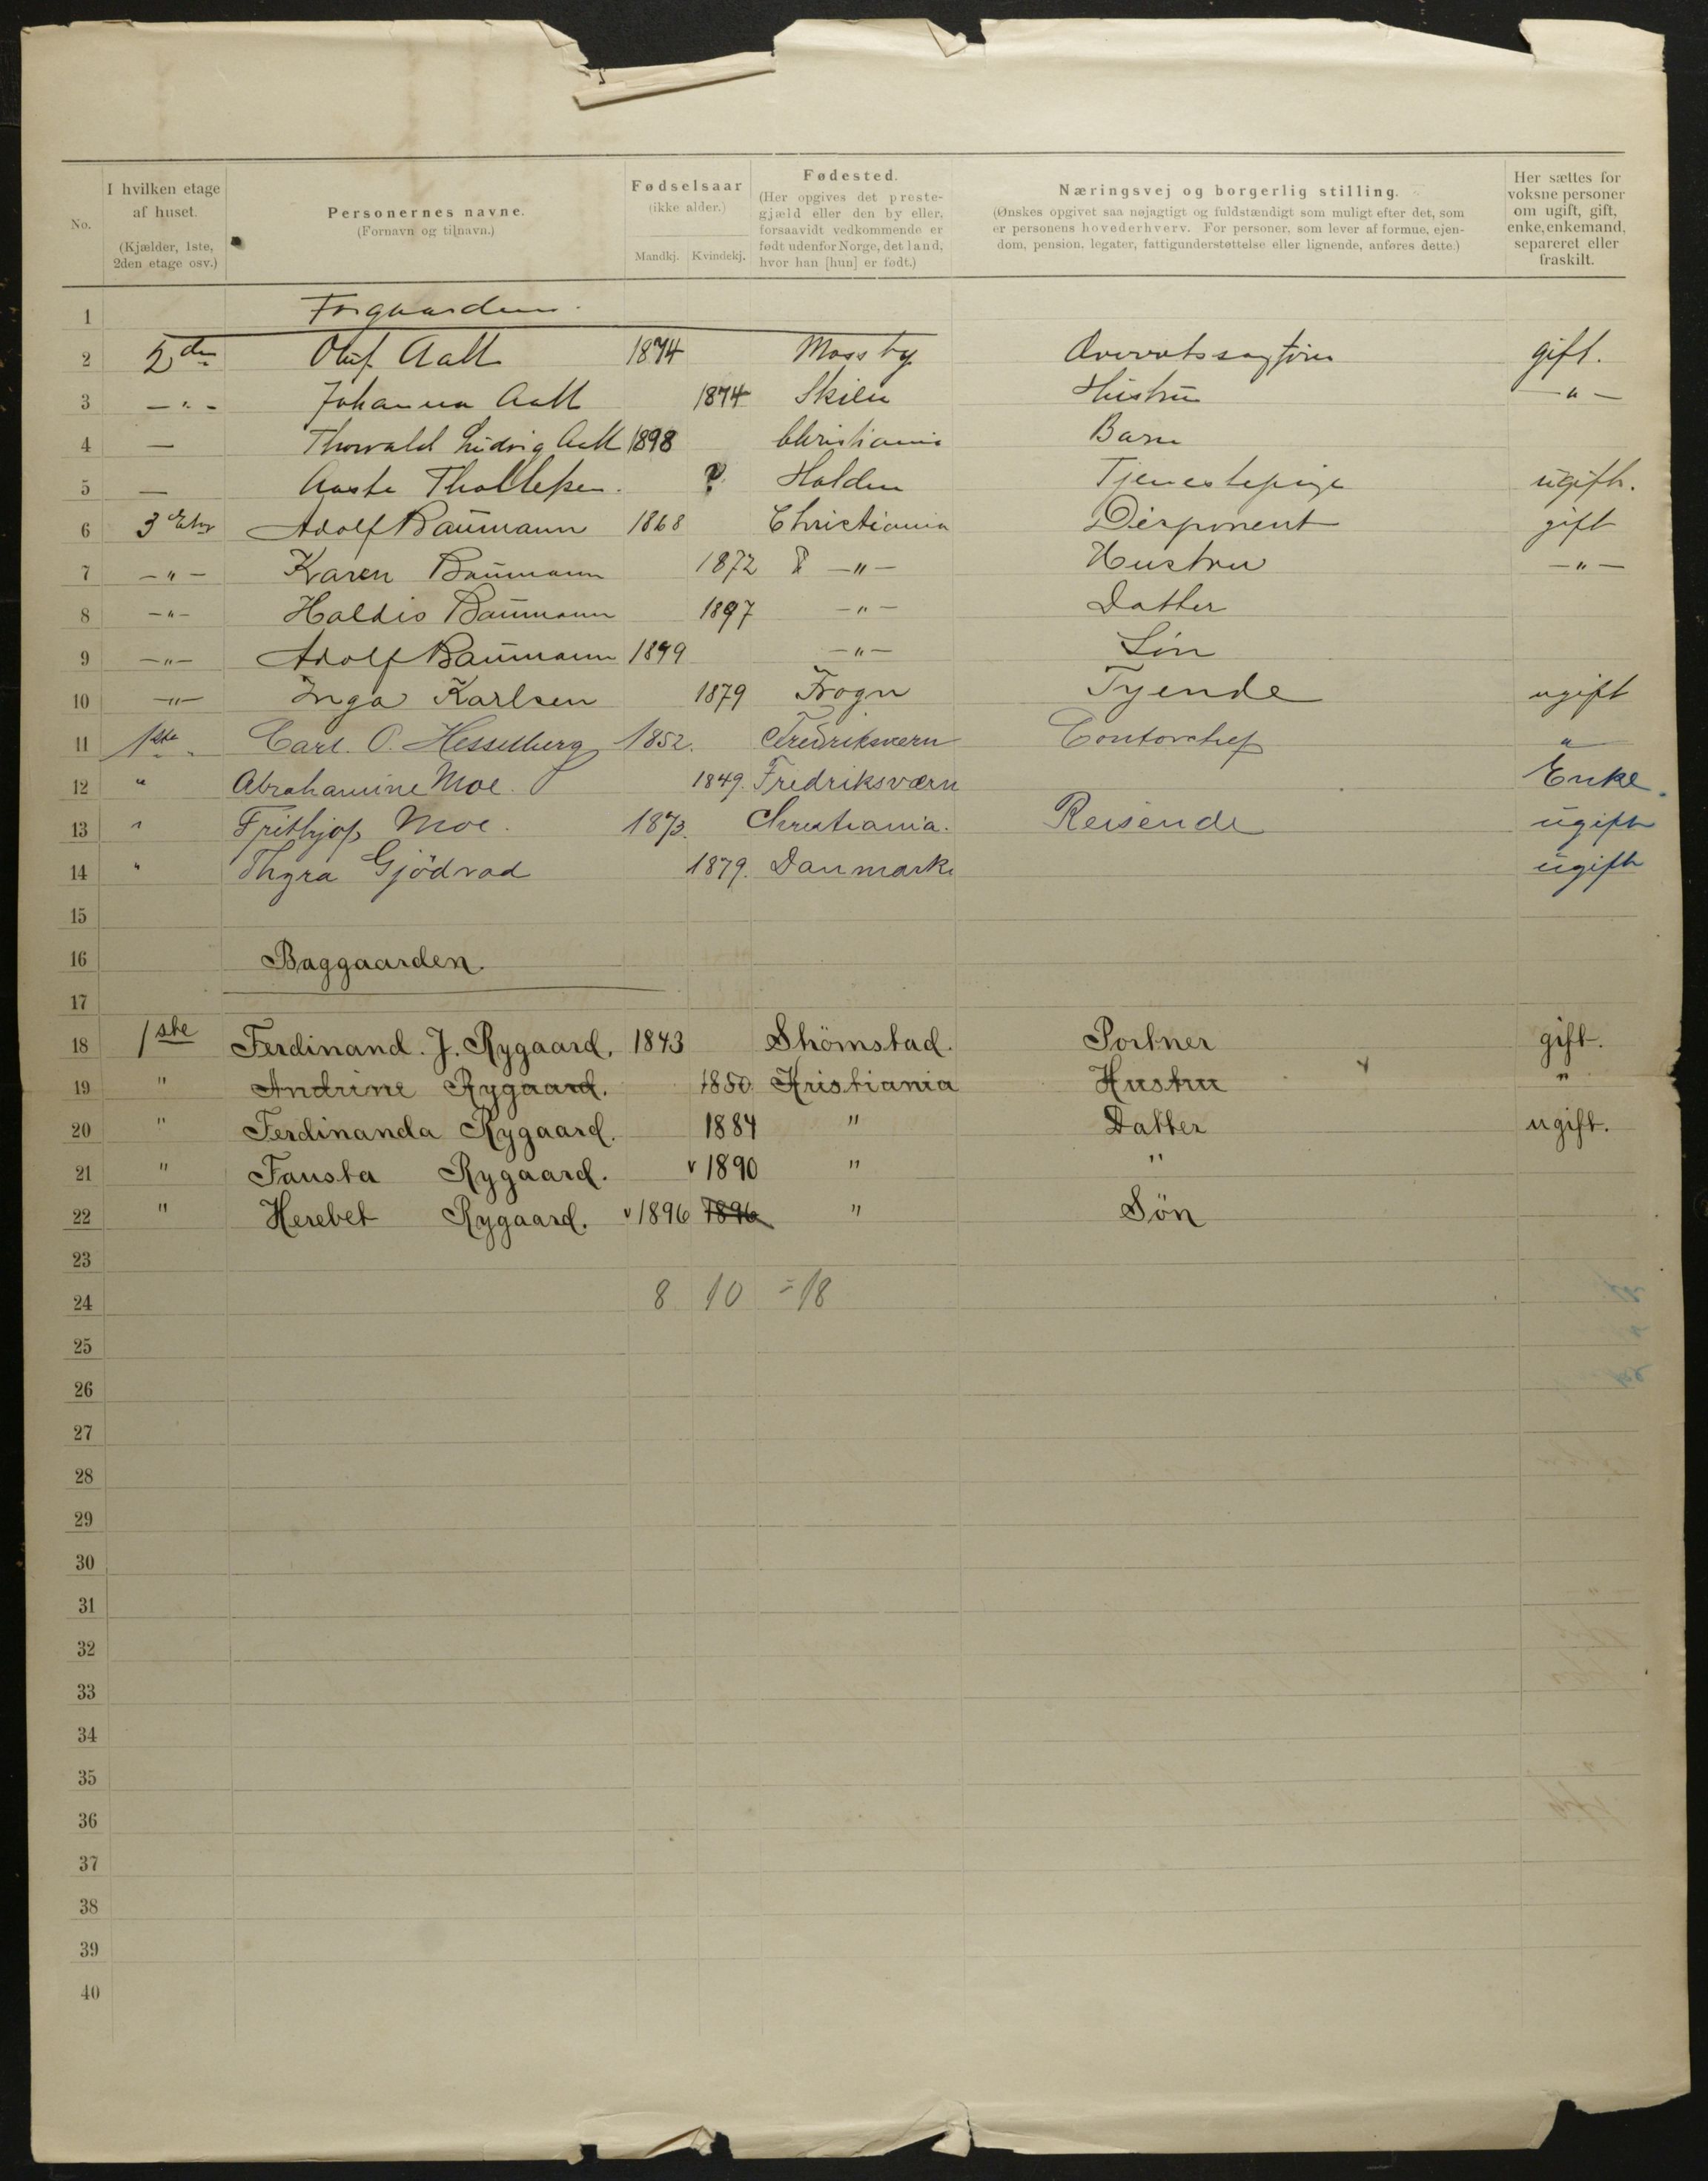 No.
I hvilken etage af huset. (Kjælder, 1ste, 2den etage osv.)
Personernes navne. (Fornavn og tilnavn.)
Fødselsaar (ikke alder.) Mandkj. Kvindekj.
Fødested. (Her opgives det prestegjæld eller den by eller, forsaavidt vedkommende er født udenfor Norge, det land, hvor han [hun] er født.)
Næringsvej og borgerlig stilling. (Ønskes opgivet saa nøjagtigt og fuldstændigt som muligt efter det, som er personens hovederhverv. For personer, som lever af formue, ejendom, pension, legater, fattigunderstøttelse eller lignende, anføres dette.)
Her sættes for voksne personer om ugift, gift, enke, enkemand, separeret eller fraskilt.
1 Forgaarden
2 2den Oluf Aall 1874 Moss by Overretssagfører gift.
3 — " — Johanna Aall 1874 Skien Hustru — " —
4 — Thorvald Ludvig Aall 1898 Christiania Barn
5 — Aaste Thollefsen. ? Holden Tjenestepige ugift.
6 3 Etg Adolf Baumann 1868 Christiania Disponent gift
7 — " — Karen Baumann 1872 — " — Hustru — " —
8 — " — Haldis Baumann 1897 — " — Datter
9 — " — Adolf Baumann 1899 — " — Søn
10 — " — Inga Karlsen 1879 Frogn Tyende ugift
11 1ste Carl. O. Hesselberg 1852. Fredriksværn Contorchef "
12 " Abrahamine Moe. 1849. Fredriksværn Enke.
13 " Frithjof Moe. 1873. Christiania. Reisende ugift
14 " Thyra Gjödvad 1879. Danmark. ugift
15
16 Baggaarden.
17
18 1ste Ferdinand. J. Rygaard. 1843 Strömstad. Portner gift.
19 " Andrine Rygaard. 1850. Kristiania Hustru "
20 " Ferdinanda Rygaard. 1884 " Datter ugift.
21 " Fausta Rygaard. v 1890 " "
22 " Herebet Rygaard. v 1896 1896 " Sön
23
24 8 10 = 18
25
26
27
28
29
30
31
32
33
34
35
36
37
38
39
40